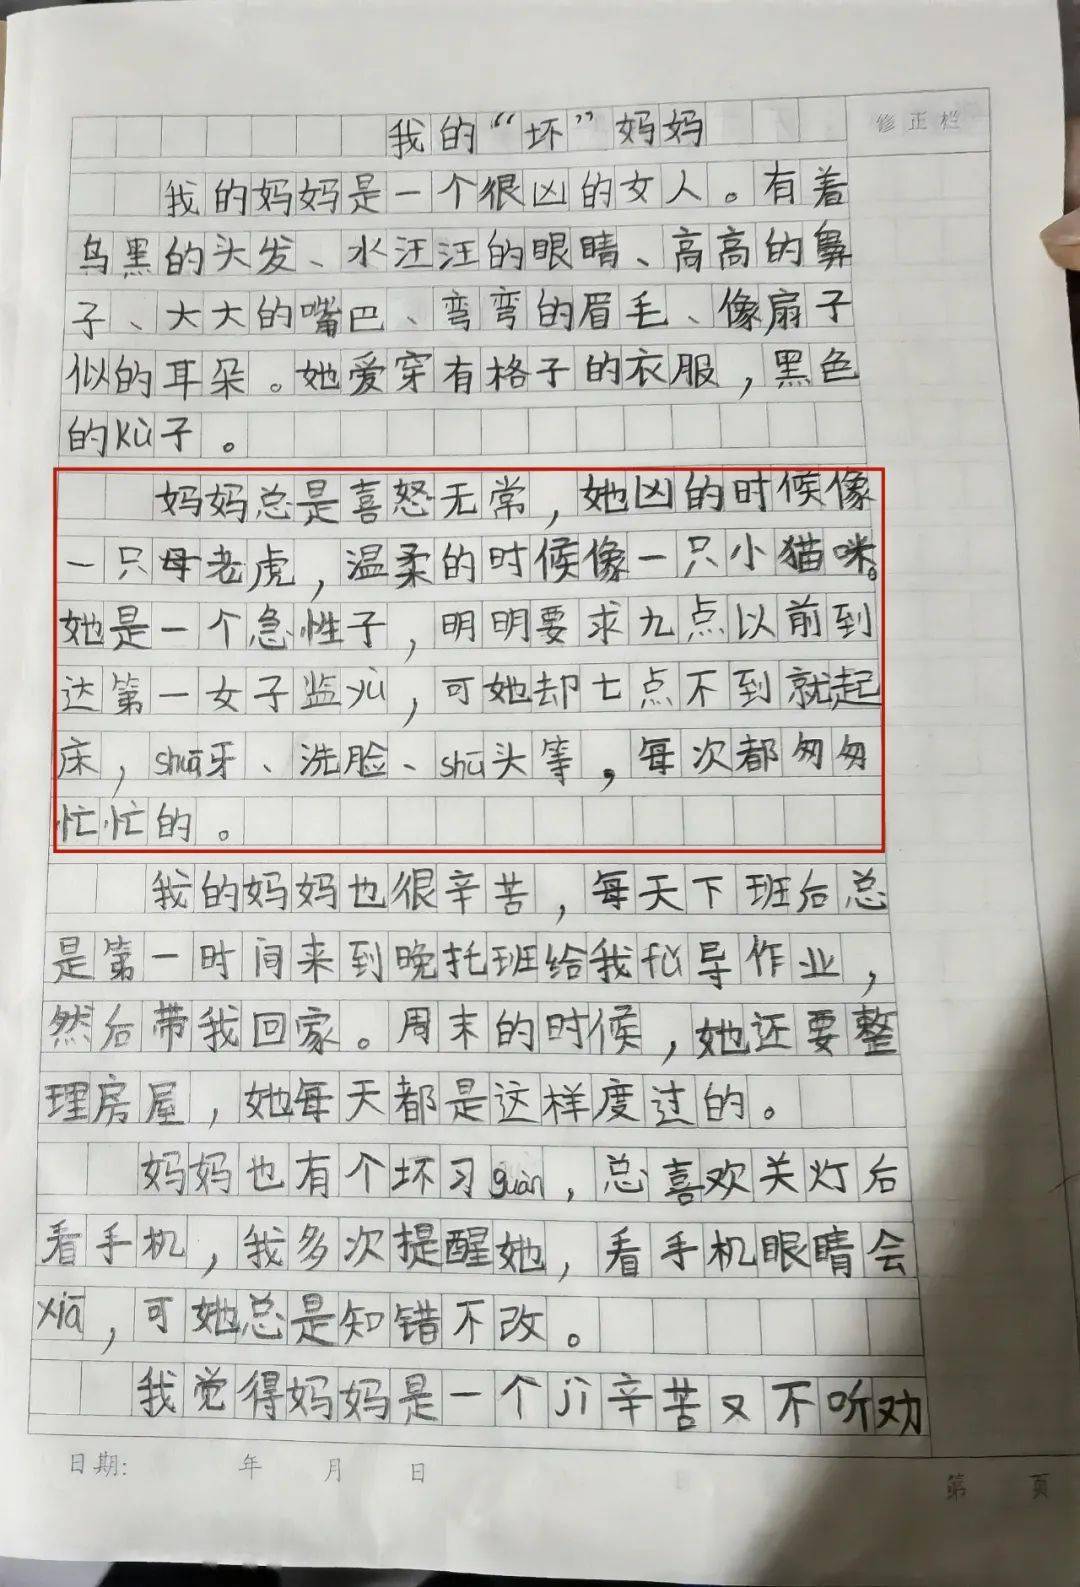 我的“坏”妈妈
修正栏
我的妈妈是一个很凶的女人。有着
乌黑的头发、水汪汪的眼睛、高高的鼻
子、大大的嘴巴、弯弯的眉毛、像扇子
似的耳朵。她爱穿有格子的衣服，黑色
的kù子。
妈妈总是喜怒无常，她凶的时候像
一只母老虎，温柔的时候像一只小猫咪。
她是一个急性子，明明要求九点以前到
达第一女子监yù，可她却七点不到就起
床，shuā牙、洗脸、shū头等，每次都匆匆
忙忙的。
我的妈妈也很辛苦，每天下班后总
是第一时间来到晚托班给我fǔ导作业，
然后带我回家。周末的时候，她还要整
理房屋，她每天都是这样度过的。
妈妈也有个坏习guàn，总喜欢关灯后
看手机，我多次提醒她，看手机眼睛会
xiā，可她总是知错不改。
我觉得妈妈是一个jì辛苦又不听劝
日期: 年 月 日
第 页